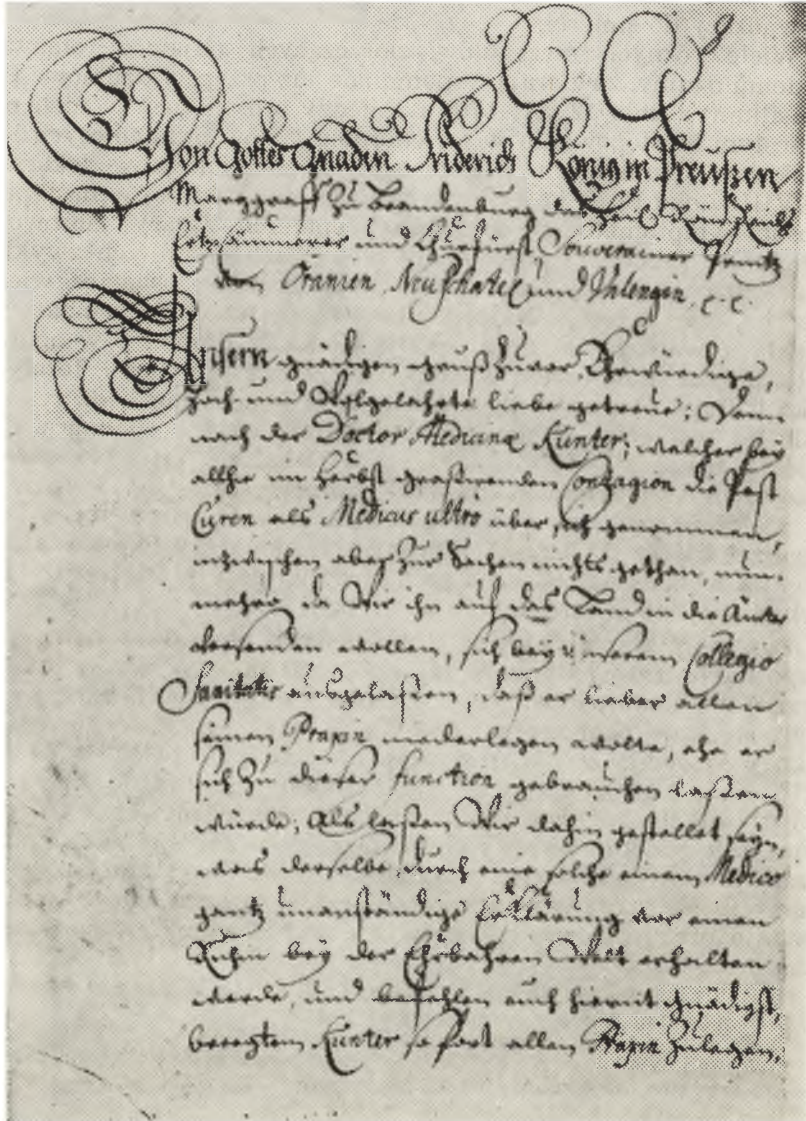 Von Gottes Gnaden Friderich König in Preußen
Marggraff zu Brandenburg des Heil. Röm. Reichs
Ertzcämmerer und Churfürst, Souverainer Printz
von Oranien, Neufchatel und Valengin, c. c.
Unsern gnädigen gruß zuvor, Ehrwürdige,
Hoch- und Wolgelahrte liebe getreue; Dem-
nach der Doctor Medicinæ Kunter; welcher bey
allhie im Herbst grassirenden Contagion die Pest
Curen als Medicus ultrò über sich genommen,
inzwischen aber zur Sachen nichts gethan, nun-
mehro da Wir ihn auf das Land in die Ämter
versenden wollen, sich bey Unserem Collegio
Sanitatis ausgelaßen, daß er lieber allen
seinen Praxin niederlegen wolte, ehe er
sich zu dieser function gebrauchen laßen
würde; Als laßen Wir dahin gestellet seyn,
was derselbe durch eine solche einem Medico
gantz unanständige Erklärung vor einen
Ruhm bey der Ehrbahren Welt erhalten
werde, und befehlen euch hiemit gnädigst,
besagtem Kunter sofort allen Praxin zulegen,